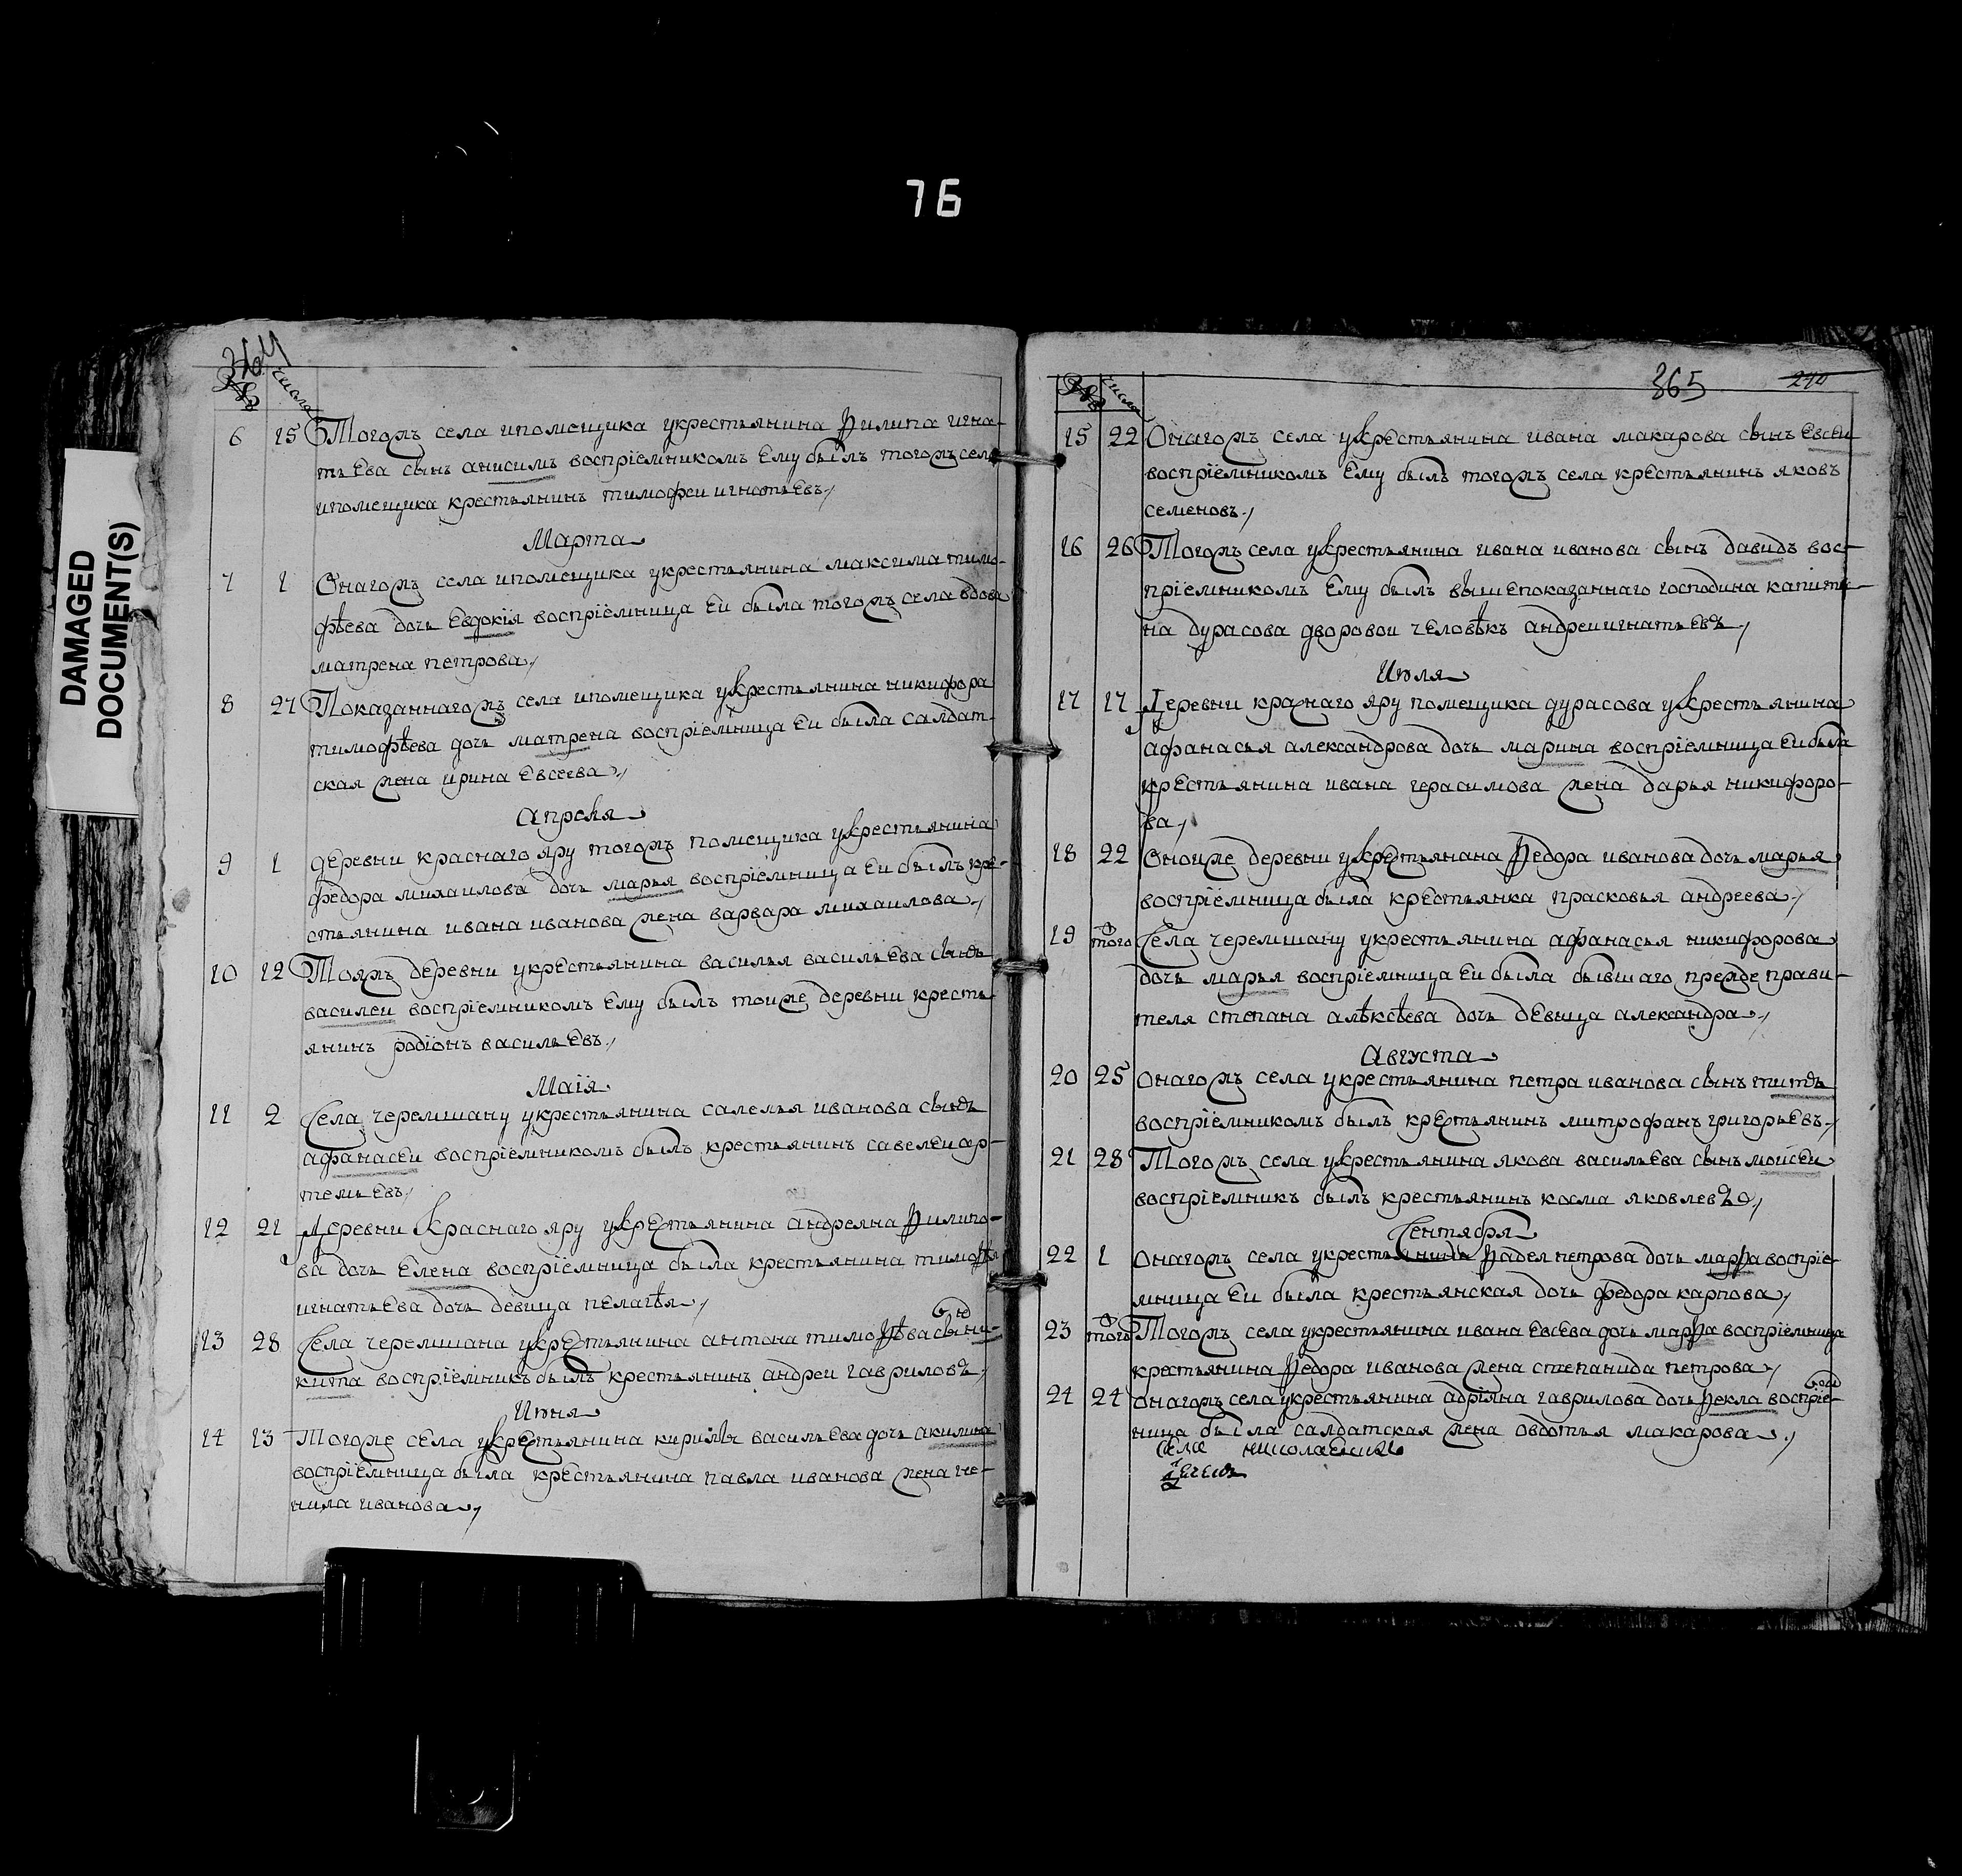 76
DAMAGED
DOCUMENT(S)
364
числа
6 15 Тогожъ села ипомещика укрестьянина Филипа игна-
тьева сынъ анисимъ воспрїемникомъ ему былъ тогожъ села
ипомещика крестьянинъ тимофеи игнатьевъ
Марта
7 1 Онагожъ села ипомещика укрестьянина максима тимо-
фѣева дочь Евдокїя воспрїемница еи была тогожъ села вдова
матрена петрова
8 27 Показаннагожъ села ипомещика укрестьянина никифора
тимофѣева дочь матрена воспрїемница еи была салдат-
ская жена ирина Евсеева
Апреля
9 1 деревни краснаго яру тогожъ помещика укрестьянина
федора михаилова дочь марья воспрїемница еи былъ кре-
стьянина ивана иванова жена варвара михаилова
10 12 Тояжъ деревни укрестьянина василья васильева сынъ
василеи воспрїемникомъ ему былъ тоиже деревни кресть-
янинъ родїонъ васильевъ
Маїя
11 2 Села черемшану укрестьянина савелья иванова сынъ
афанасеи воспрїемникомъ былъ крестьянинъ савелеи ар-
темьевъ
12 21 Деревни Краснаго яру укрестьянина андреяна Филипо-
ва дочь Елена воспрїемница была крестьянина тимофѣя
игнатьева дочь девица пелагѣя
13 28 Села черемшана укрестьянина антона тимофѣева сынъ ни-
кита воспрїемникъ былъ крестьянинъ андреи гавриловъ
Июня
14 13 Тогоже села укрестьянина кирилы васильева дочь акилина
воспрїемница была крестьянина павла иванова жена не-
нила иванова
365 240
числа
15 22 Онагожъ села укрестьянина ивана макарова сынъ Евсеи
воспрїемникомъ ему былъ тогожъ села крестьянинъ яковъ
семеновъ
16 26 Тогожъ села укрестьянина ивана иванова сынъ давидъ вос-
прїемникомъ ему былъ вышепоказаннаго господина капита-
на дурасова дворовои человѣкъ андреи игнатьевъ
Июля
17 17 Деревни кражнаго яру помещика дурасова укрестьянина
афанасья александрова дочь марина воспрїемница еи была
крестьянина ивана герасимова жена дарья никифоро-
ва
18 22 Оноиже деревни укрестьянана Федора иванова дочь марья
воспрїемница была крестьянка прасковья андреева
19 того Села черемшану укрестьянина афанасья никифорова
дочь марья воспрїемница еи была бывшаго прежде прави-
теля степана алѣксѣева дочь девица александра
Августа
20 25 онагожъ села укрестьянина петра иванова сынъ титъ
воспрїемникомъ былъ крестьянинъ митрофанъ григорьевъ
21 28 Тогожъ села укрестьянина якова васильева сынъ моисеи
воспрїемникъ былъ крестьянинъ косма яковлевъ
Сентября
22 1 Онагожъ села укрестьянина Фадея петрова дочь марфа воспрїе-
мница еи была крестьянская дочь федора карпова
23 того Тогожъ села укрестьянина ивана Евсева дочь марфа воспрїемница
крестьянина Федора иванова жена степанида петрова
24 24 онагожъ села укрестьянина адрїяна гаврилова дочь Фекла воспрїе-
ница была салдатская жена овдотья макарова
села николаевскаго